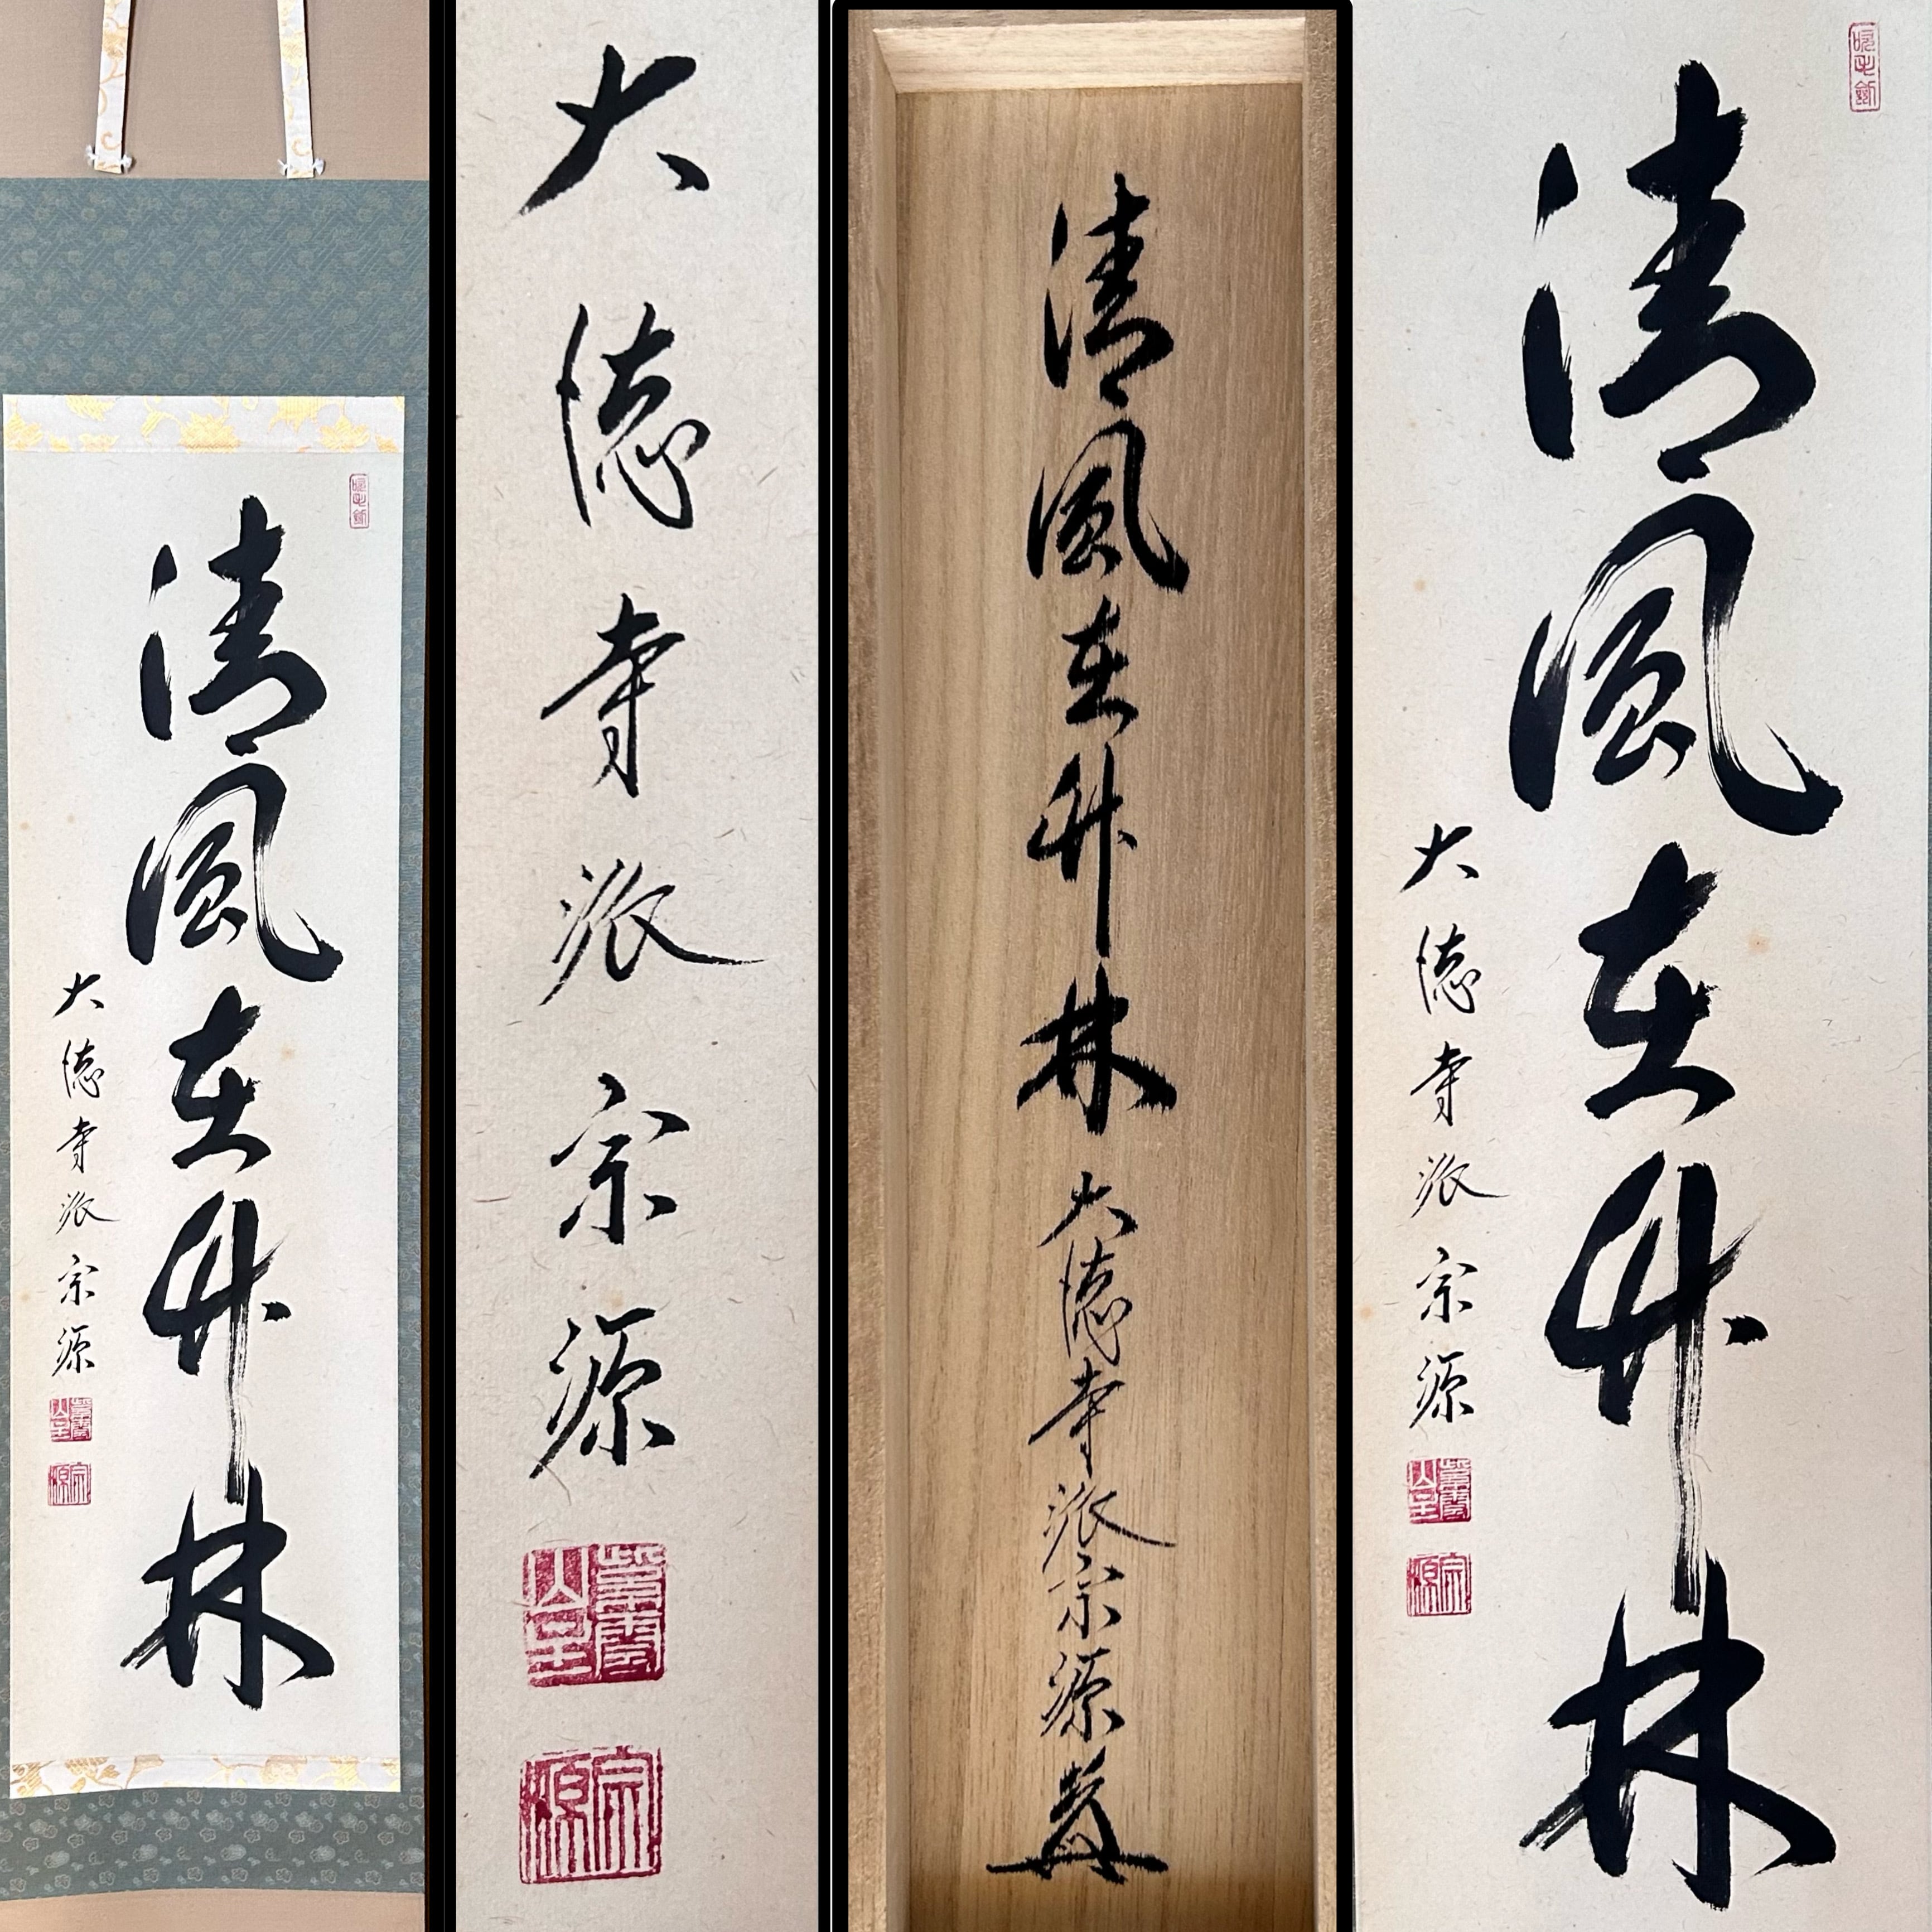 清風在竹林
大徳寺派宗源
宗源
大徳寺派宗源
宗源
清風在竹林 大徳寺派宗源
清風在竹林
大徳寺派宗源
宗源